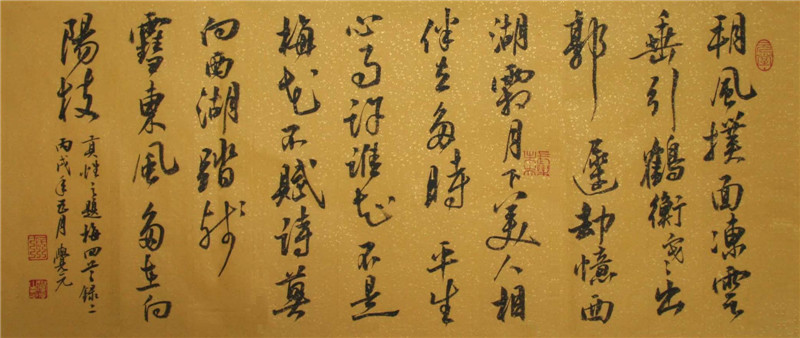 朔風撲面凍雲
垂引鶴衝寒出
郭遲却憶西
湖霜月下美人相
伴立多時平生
心事許誰知不是
梅花不賦詩莫
向西湖踏殘
雪東風多在向
陽枝
貢性之題梅四首錄二
丙戌年正月覺元